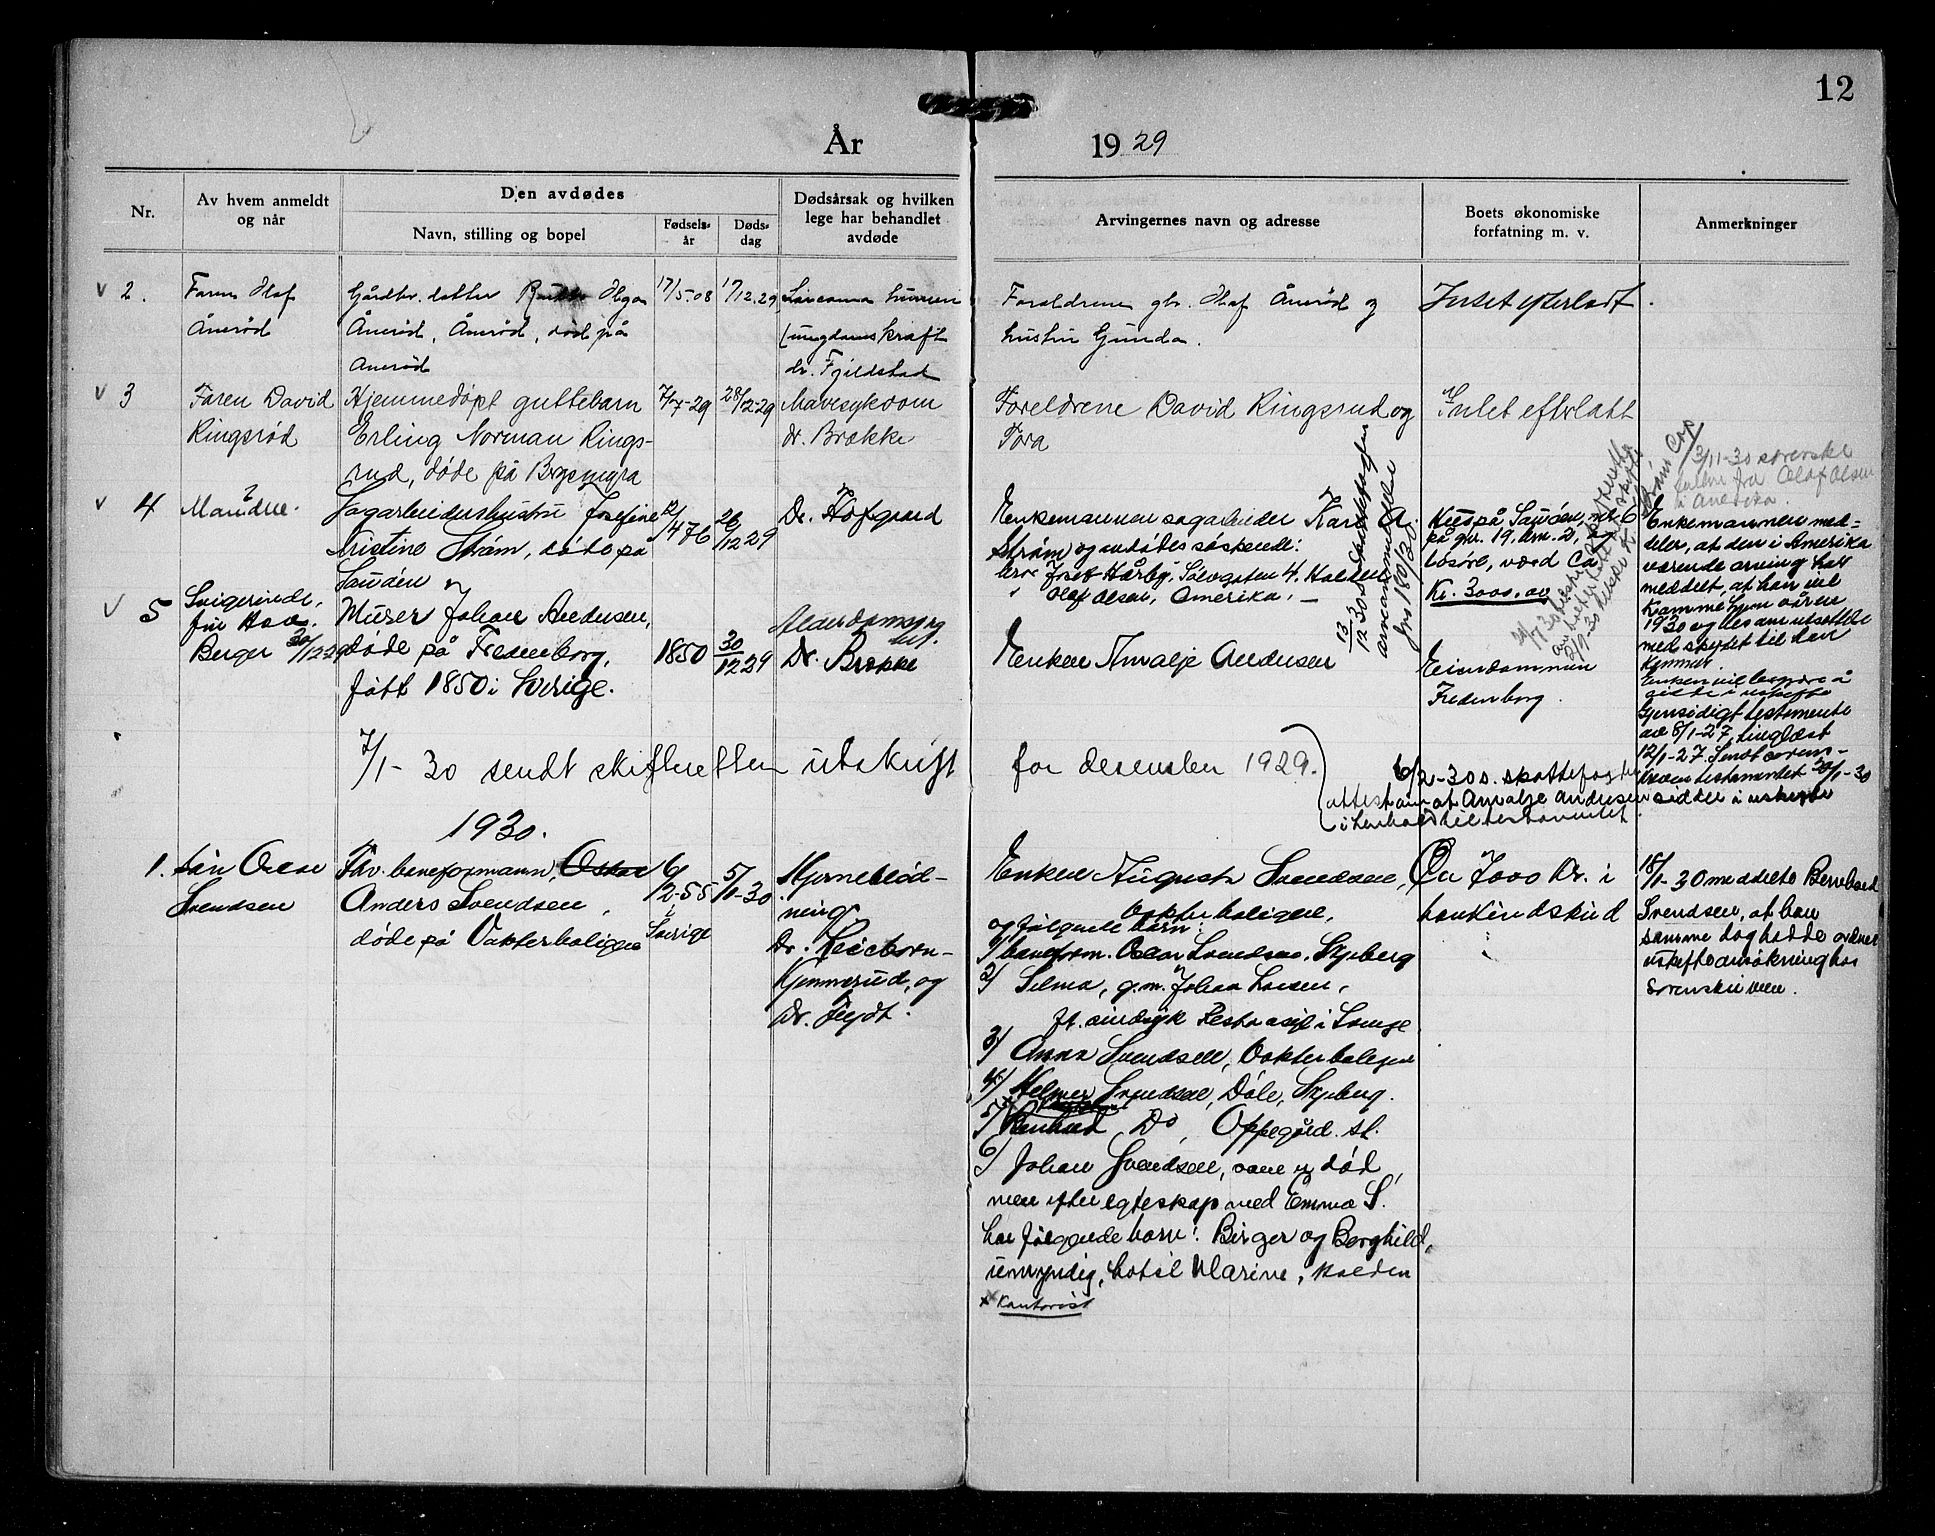 12
År 1929
Nr.
Av hvem anmeldt
og når
Den avdødes
Navn, stilling og bopel
Fødsels-
år
Døds-
dag
Dødsårsak og hvilken
lege har behandlet
avdøde
Arvingernes navn og adresse
Boets økonomiske
forfatning m. v.
Anmerkninger
2.
Faren Olaf
Ånerød
Gårdbr. datter Helga
Ånerød, Ånerød, død på
Ånerød
17/5.08
17/12.29
Sarcoma
(ungdomskræft
dr. Fjeldstad
Foreldrene gbr. Olaf Ånerød og
hustru Gunda.
Intet efterladt.
3
Faren David
Ringsrød
Hjemmedøpt guttebarn
Erling Norman Rings-
rud, døde på
7/7-29
28/12-29
Mavesykdom
dr. Brække
Foreldrene David Ringsrud og
Tora
Intet efterlatt
4
Manden
Sagarbeiderhustru Josefine
Kristine Strøm, døde på
Sauøen
12/1476
26/12 29
Dr. Hofgaard
Enkemannen sagarbeider Karl A.
Strøm og avdødes søskende:
Josef Hårby, Sølvgaten 4, Halden
Olaf Olsen, Amerika.
13/12 30
Hus på Sauøen,
på gnr. 19, brn. 2,
løsøre, værd Ca
Kr. 3000.00
3/11-30
fra Olaf Olsen
i Amerika.
Enkemannen med-
deler, at den i Amerika
værende arving har
meddelt, at han vil
komme hjem våren
1930 og
med skiftet til han
kommer.
5
Svigerinde,
fru
Berger 30/12 29
Murer Johan Andersen,
døde på Fredenborg,
født 1850 i Sverige.
1850
30/12 29
Alderdomssvag
het.
Dr. Brække
Enken Amalje Andersen
Eiendommen
Fredenborg.
Enken vil begjære å
sidde i uskifte
Gjensidigt testamente
av 8/1-27, tinglæst
12/1-27. Sendt soren-
skriveren testamentet 20/1-30
7/1-30 sendt skifteretten utskrift for desember 1929.
6/2-30 s. skattefogden
attest om at Amalje Andersen sidder i uskifte
i henhold til testamentet.
1930.
1.
Søn Oscar
Svendsen
Fhv. baneformann, Oskar
Anders Svendsen,
døde på Vokterboligen
6/12-55
i
Sverige
5/1-30
Hjerneblød-
ning,
Dr.
Kjennerud, og
Dr. Fydt.
Enken Augusta Svendsen,
Vokterboligen,
og følgende børn:
1/ baneform. Oscar Svendsen, Skjeberg
2/ Selma, g.m. Johan Larsen,
ft. sindsyk Restad asyl i Sverige
3/ Anna Svendsen, Vokterboligen
4/ Helmer Svendsen, Døle, Skjeberg.
5/ Do, Oppegård st.
6/ Johan Svendsen, som er død,
men efter egteskap med Emma S.
har følgende barn: Birger og Borghild,
umyndig, hotel Marine, Halden
x Kontorist
Ca 7000 Kr. i
bankindskud
18/1-30 meddelte Bernhard
Svendsen, at han
samme dag hadde ordnet
uskifteansøkning hos
sorenskriveren.